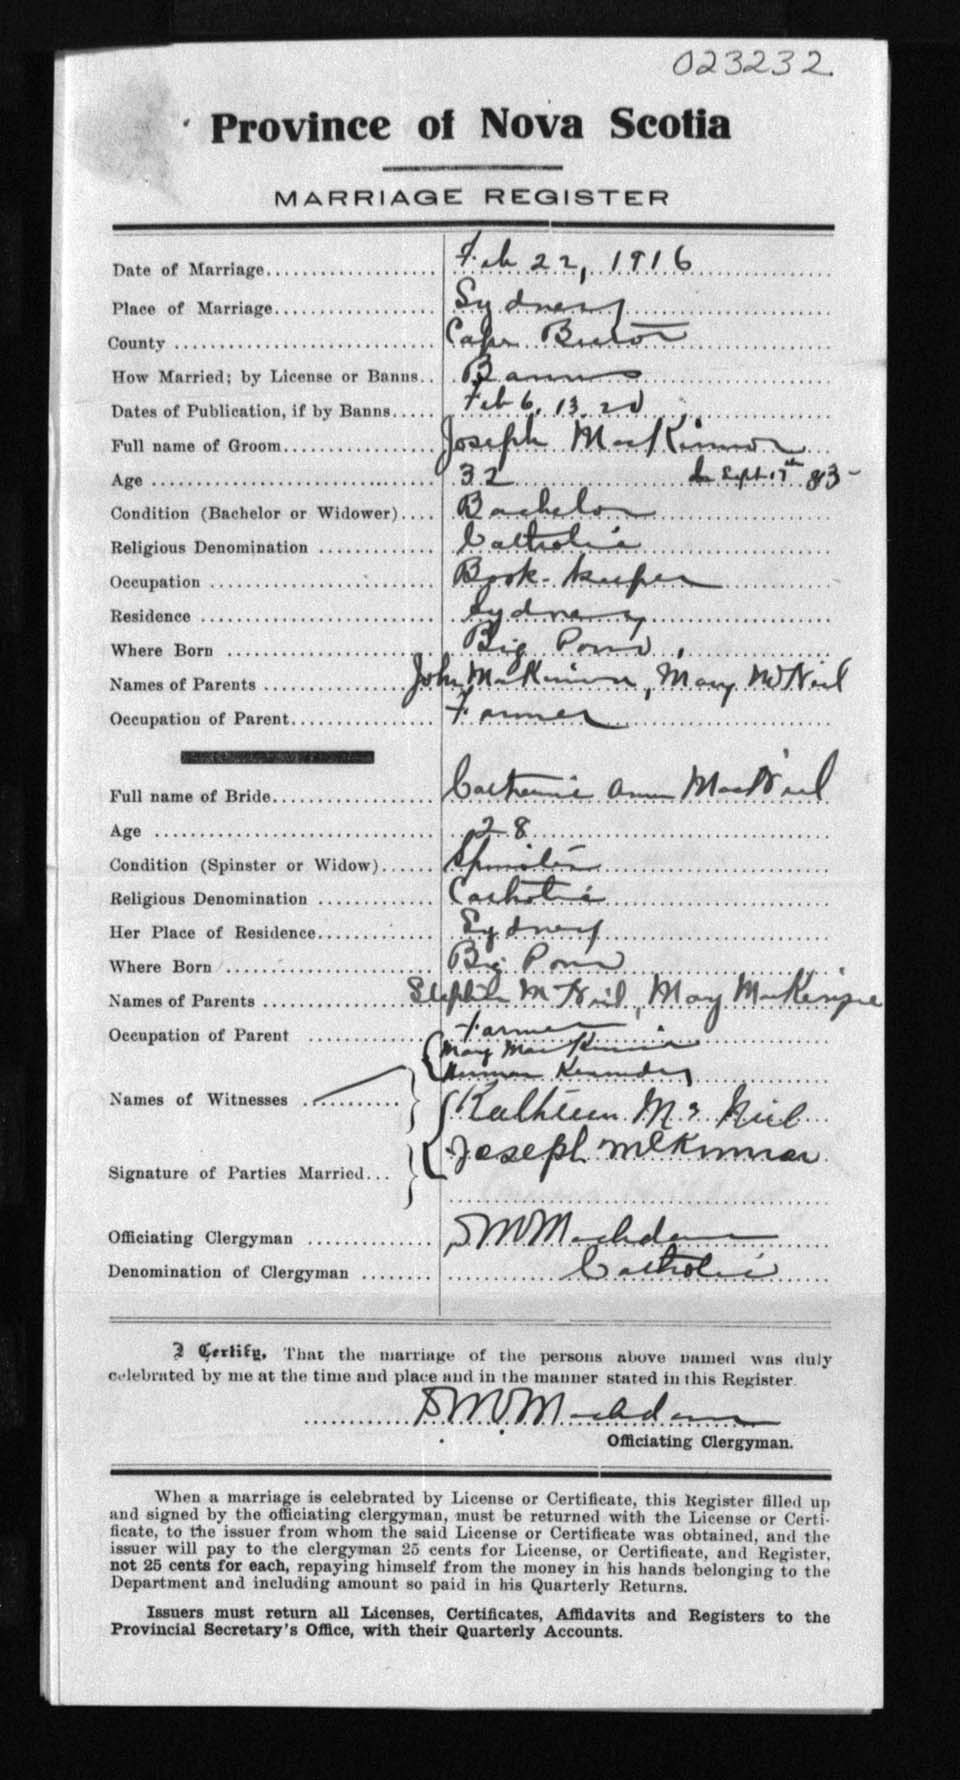 023232
Province of Nova Scotia
MARRIAGE REGISTER
Date of Marriage................... Feb 22, 1916
Place of Marriage.................. Sydney
County ............................ Cape Breton
How Married; by License or Banns.. Banns
Dates of Publication, if by Banns..... Feb 6, 13, 20
Full name of Groom................. Joseph MacKinnon
Age ............................... 32 Sept 17th 83
Condition (Bachelor or Widower).... Bachelor
Religious Denomination ............ Catholic
Occupation ........................ Book-keeper
Residence ......................... Sydney
Where Born ........................ Big Pond
Names of Parents .................. John MacKinnon, Mary McNeil
Occupation of Parent............... Farmer
Full name of Bride................. Catherine Ann MacNeil
Age ............................... 28
Condition (Spinster or Widow)...... Spinster
Religious Denomination ............ Catholic
Her Place of Residence............. Sydney
Where Born ........................ Big Pond
Names of Parents .................. Stephen McNeil, Mary MacKenzie
Occupation of Parent .............. Farmer
Mary MacKinnon
Kennedy
Names of Witnesses ............
Kathleen Mc Neil
Joseph McKinnon
Signature of Parties Married...
Officiating Clergyman .............
Denomination of Clergyman ........ Catholic
I Certify, That the marriage of the persons above named was duly
celebrated by me at the time and place and in the manner stated in this Register.
Officiating Clergyman.
When a marriage is celebrated by License or Certificate, this Register filled up
and signed by the officiating clergyman, must be returned with the License or Certi-
ficate, to the issuer from whom the said License or Certificate was obtained, and the
issuer will pay to the clergyman 25 cents for License, or Certificate, and Register,
not 25 cents for each, repaying himself from the money in his hands belonging to the
Department and including amount so paid in his Quarterly Returns.
Issuers must return all Licenses, Certificates, Affidavits and Registers to the
Provincial Secretary's Office, with their Quarterly Accounts.